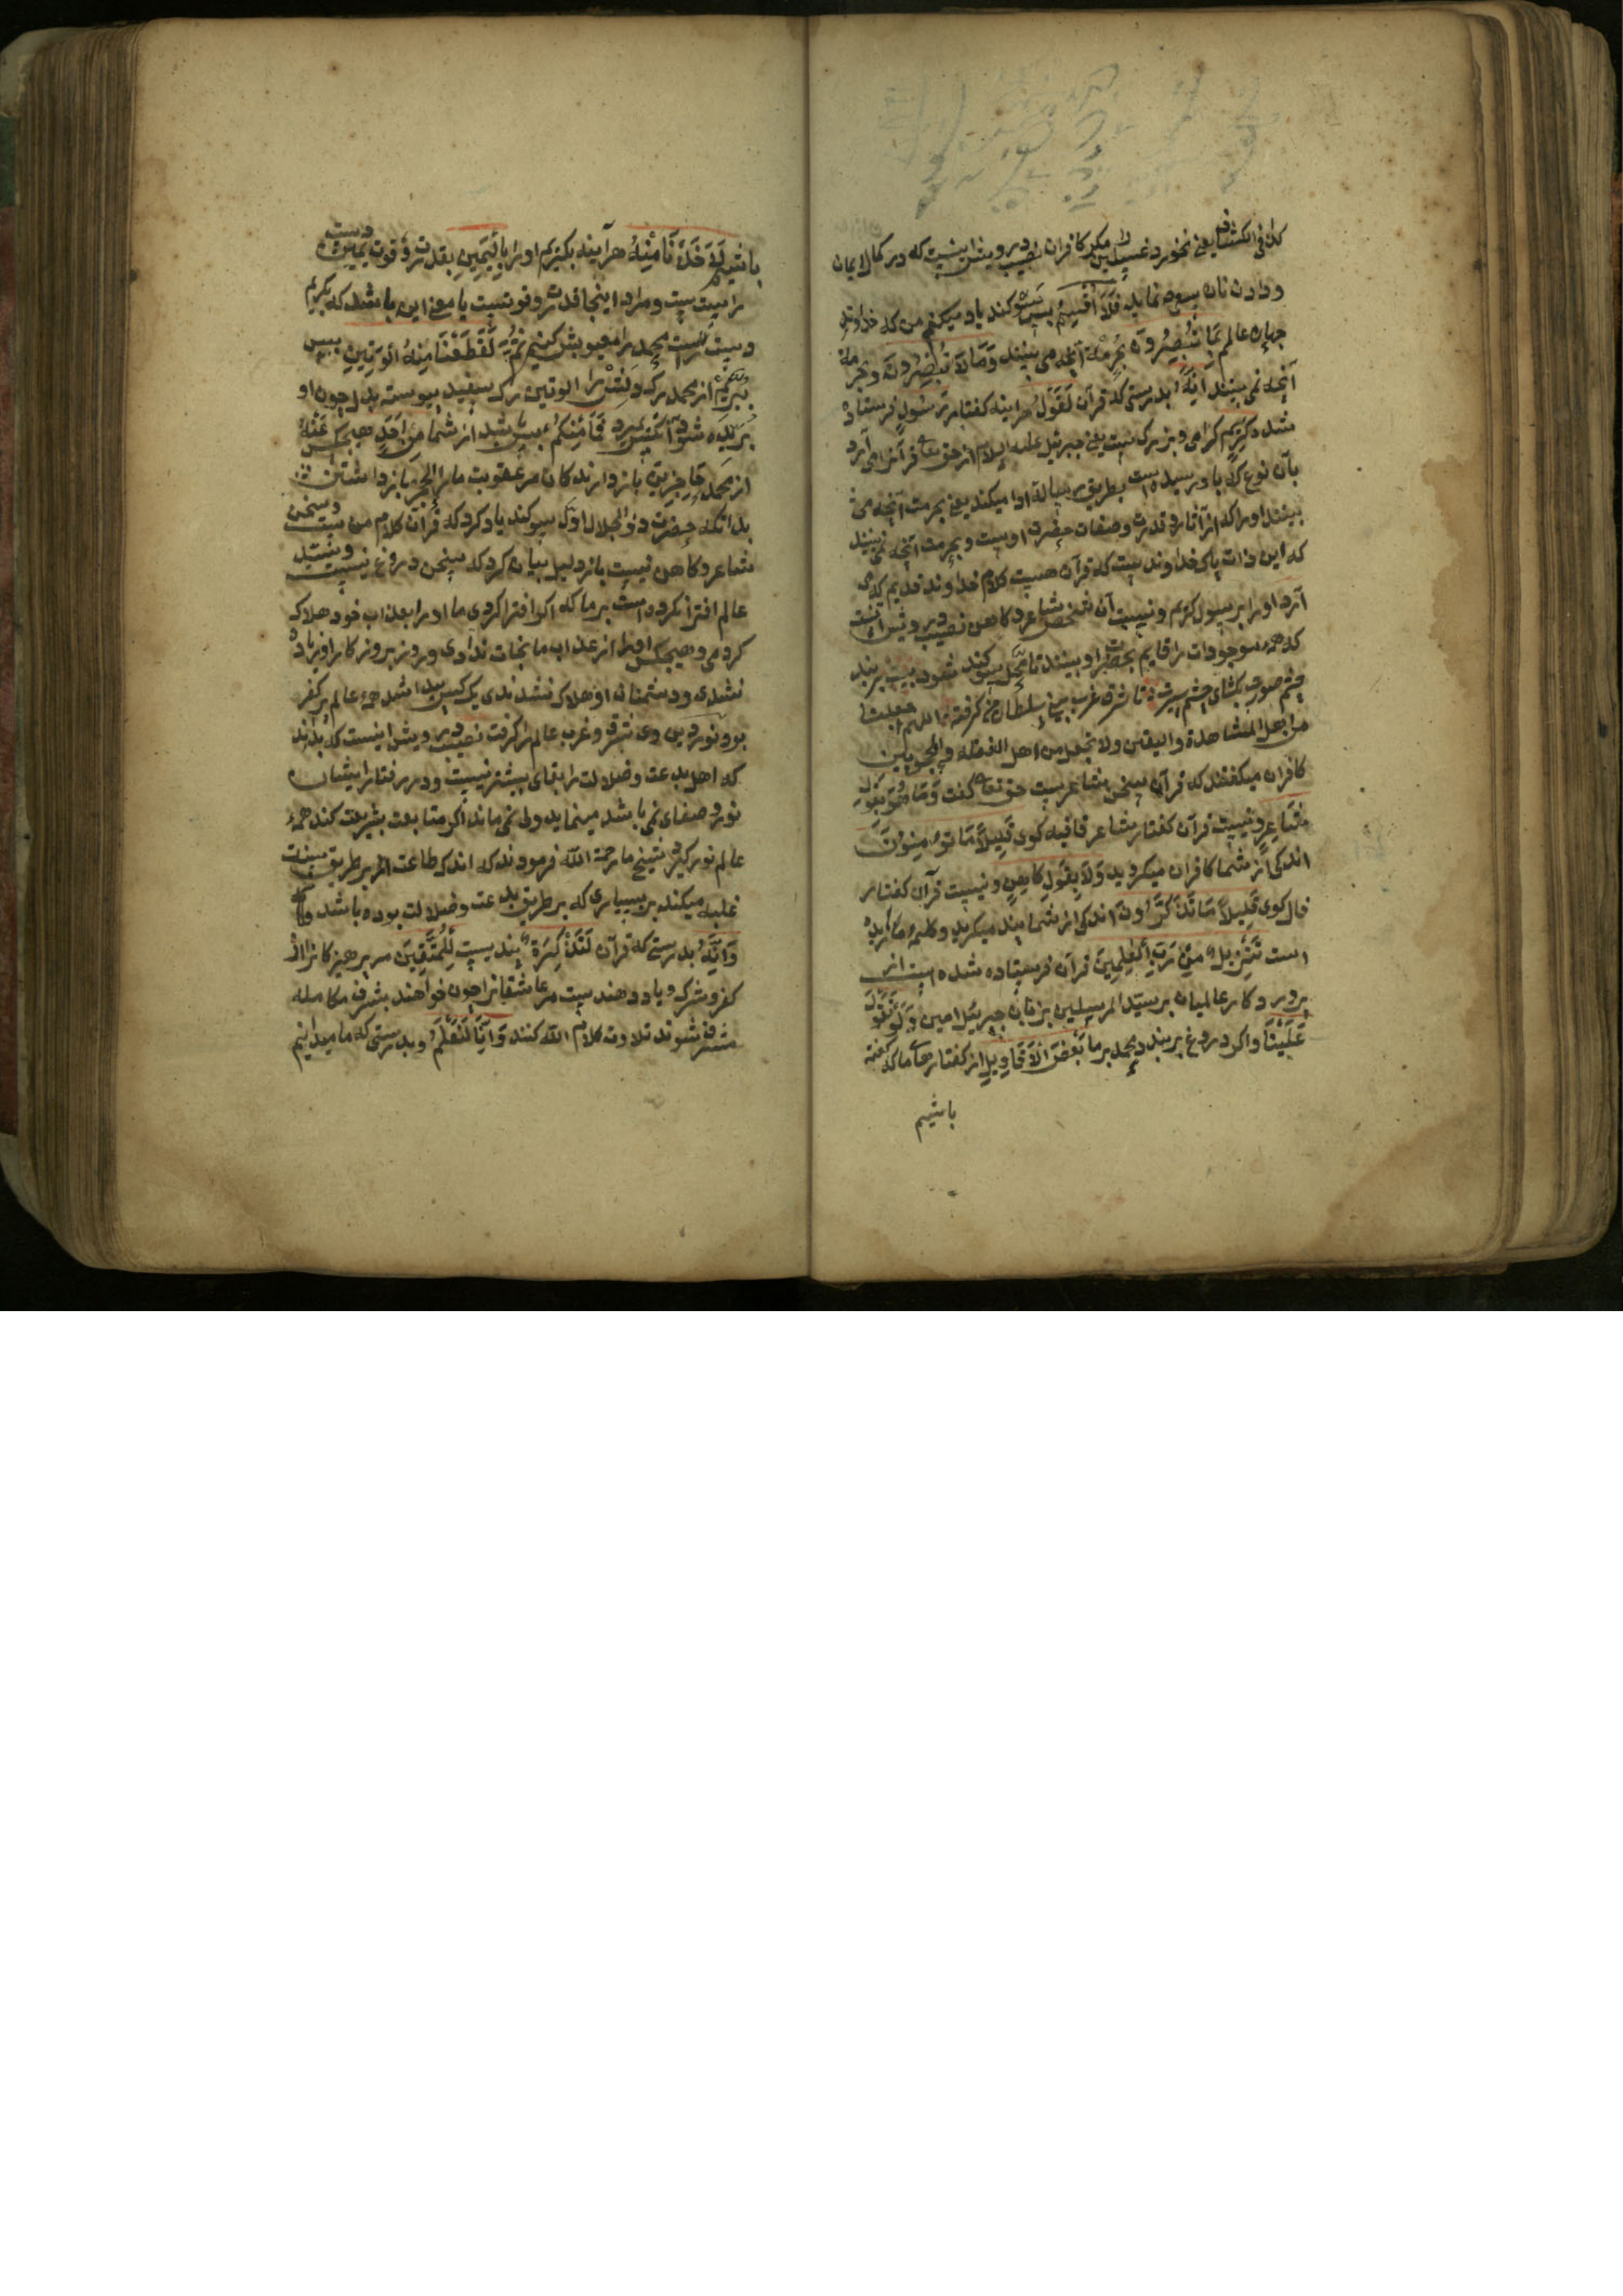 کذا فی الکشاف یعنی نخورد غسلین را مکر کافران نصیب درویش اینست که در کمال ایمان
و دادن نان سعی نماید فَلَا أُقْسِمُ پس سوکند یاد میکنم من که خداوند
جهان عالمم بِمَا تُبْصِرُونَ بحرمة آنچه می بینند وَمَا لَا تُبْصِرُونَ و بحرمة
آنچه نمی بینند اِنَّهُ بدرستی که قرآن لَقَوْلُ هراینه کفتار رَسُولٍ فرستاده
شده کَرِیمٍ کرامی و بزرک است یعنی جبرئیل علیه السلام از حق تعالی قرآنرا می آرد
بآن نوع که باو رسیده است بطریق رسالة ادا میکند یعنی بحرمت آنچه می
بینند او را که از آثار و قدرت و صفات حضرت اوست و بحرمت آنچه نمی بینند
که این ذات پاک خداوند است که قرآن هست کلام خداوند قدیم که می
آرد او را بر رسول کریم و نیست آن شخص شاعر و کاهن نصیب درویش آنست
که همه موجودات را قایم بحضرت او بینند تا محل سوکند شود بیت بربند
چشم صورت بکشای چشم سیرت تا شرق غرب بینی سلطان من کرفته اللهم اجعلنا
من اهل المشاهدة والیقین ولا تجعل من اهل الغفلة والمحجوبین
کافران میکفتند که قرآن سخن شاعرست حق تعالی کفت وَمَا هُوَ بِقَوْلِ
شَاعِرٍ و نیست قرآن کفتار شاعر قافیه کوی قَلِیلًا مَا تُؤْمِنُونَ
اندکی از شما کافران میکروید وَلَا بِقَوْلِ کَاهِنٍ و نیست قرآن کفتار
فال کوی قَلِیلًا مَا تَذَکَّرُونَ اندکی از شما پند میکرید و کلمهٔ ما زایده
است تَنْزِیلٌ مِنْ رَبِّ الْعٰلَمِینَ قرآن فرستاده شده است از
پرورد کار عالمیان بر سید المرسلین بزبان جبرئیل امین وَلَوْ تَقَوَّلَ
عَلَیْنَا و اکر دروغ بربندد محمد بر ما بَعْضَ الْاَقَاوِیلِ از کفتارهای ما که کفته
باشیم
باشیم لَاَخَذْنَا مِنْهُ هرآینه بکیریم او را بِالْیَمِینِ بقدرت و قوت یمین دست
راست است و مراد اینجا قدرت و قوتست یا معنی این باشد که بکریم
دست راست محمد را معیوبش کنیم ثُمَّ لَقَطَعْنَا مِنْهُ الْوَتِینَ پس
ببریم از محمد رک دلش را الوتین رک سفید پیوسته بدل چون او
بریده شود آنکس بمیرد فَمَا مِنْکُمْ پس نباشد از شما مِنْ اَحَدٍ هیچکس عَنْهُ
از محمد حَاجِزِینَ باز دارنده کان مر عقوبت ما را الحجز باز داشتن
بدانکه حضرت ذو الجلال اول سوکند یاد کرد که قرآن کلام من است و سخن
شاعر و کاهن نیست باز دلیل بیان کرد که سخن دروغ نیست و سید
عالم افترا نکرده است بر ما که اکر افترا کردی ما او را بعذاب خود هلاک
کردمی و هیچکس او را از عذاب ما نجات ندادی و روز بروز کار او زیاده
نشدی و دشمنان او هلاک نشدندی یک کس پیدا شد همه عالم پر کفر
بود نور دین وی شرق و غرب عالم را کرفت نصیب درویش اینست که بداند
که اهل بدعت و ضلالت را بقای بیشتر نیست و در رفتار ایشان
نور و صفای نمی باشد مینماید ولی نمی ماند اکر متابعت بشریعت کند همه
عالم نور کیرد شیخ ما رحمة الله فرمودند که اندک طاعت اکر بر طریق سنت
غلبه میکند بر بسیاری که بر طریق بدعت و ضلالت بوده باشد
وَاِنَّهُ بدرستی که قرآن لَتَذْکِرَةٌ پند یست لِلْمُتَّقِینَ مر پرهیزکانرا از
کفر و شرک و یاد دهند ست مر عاشقانرا چون خواهند بشرف مکالمه
مشرف شوند تلاوت کلام الله کنند وَاِنَّا لَنَعْلَمُ و بدرستی که ما میدانیم